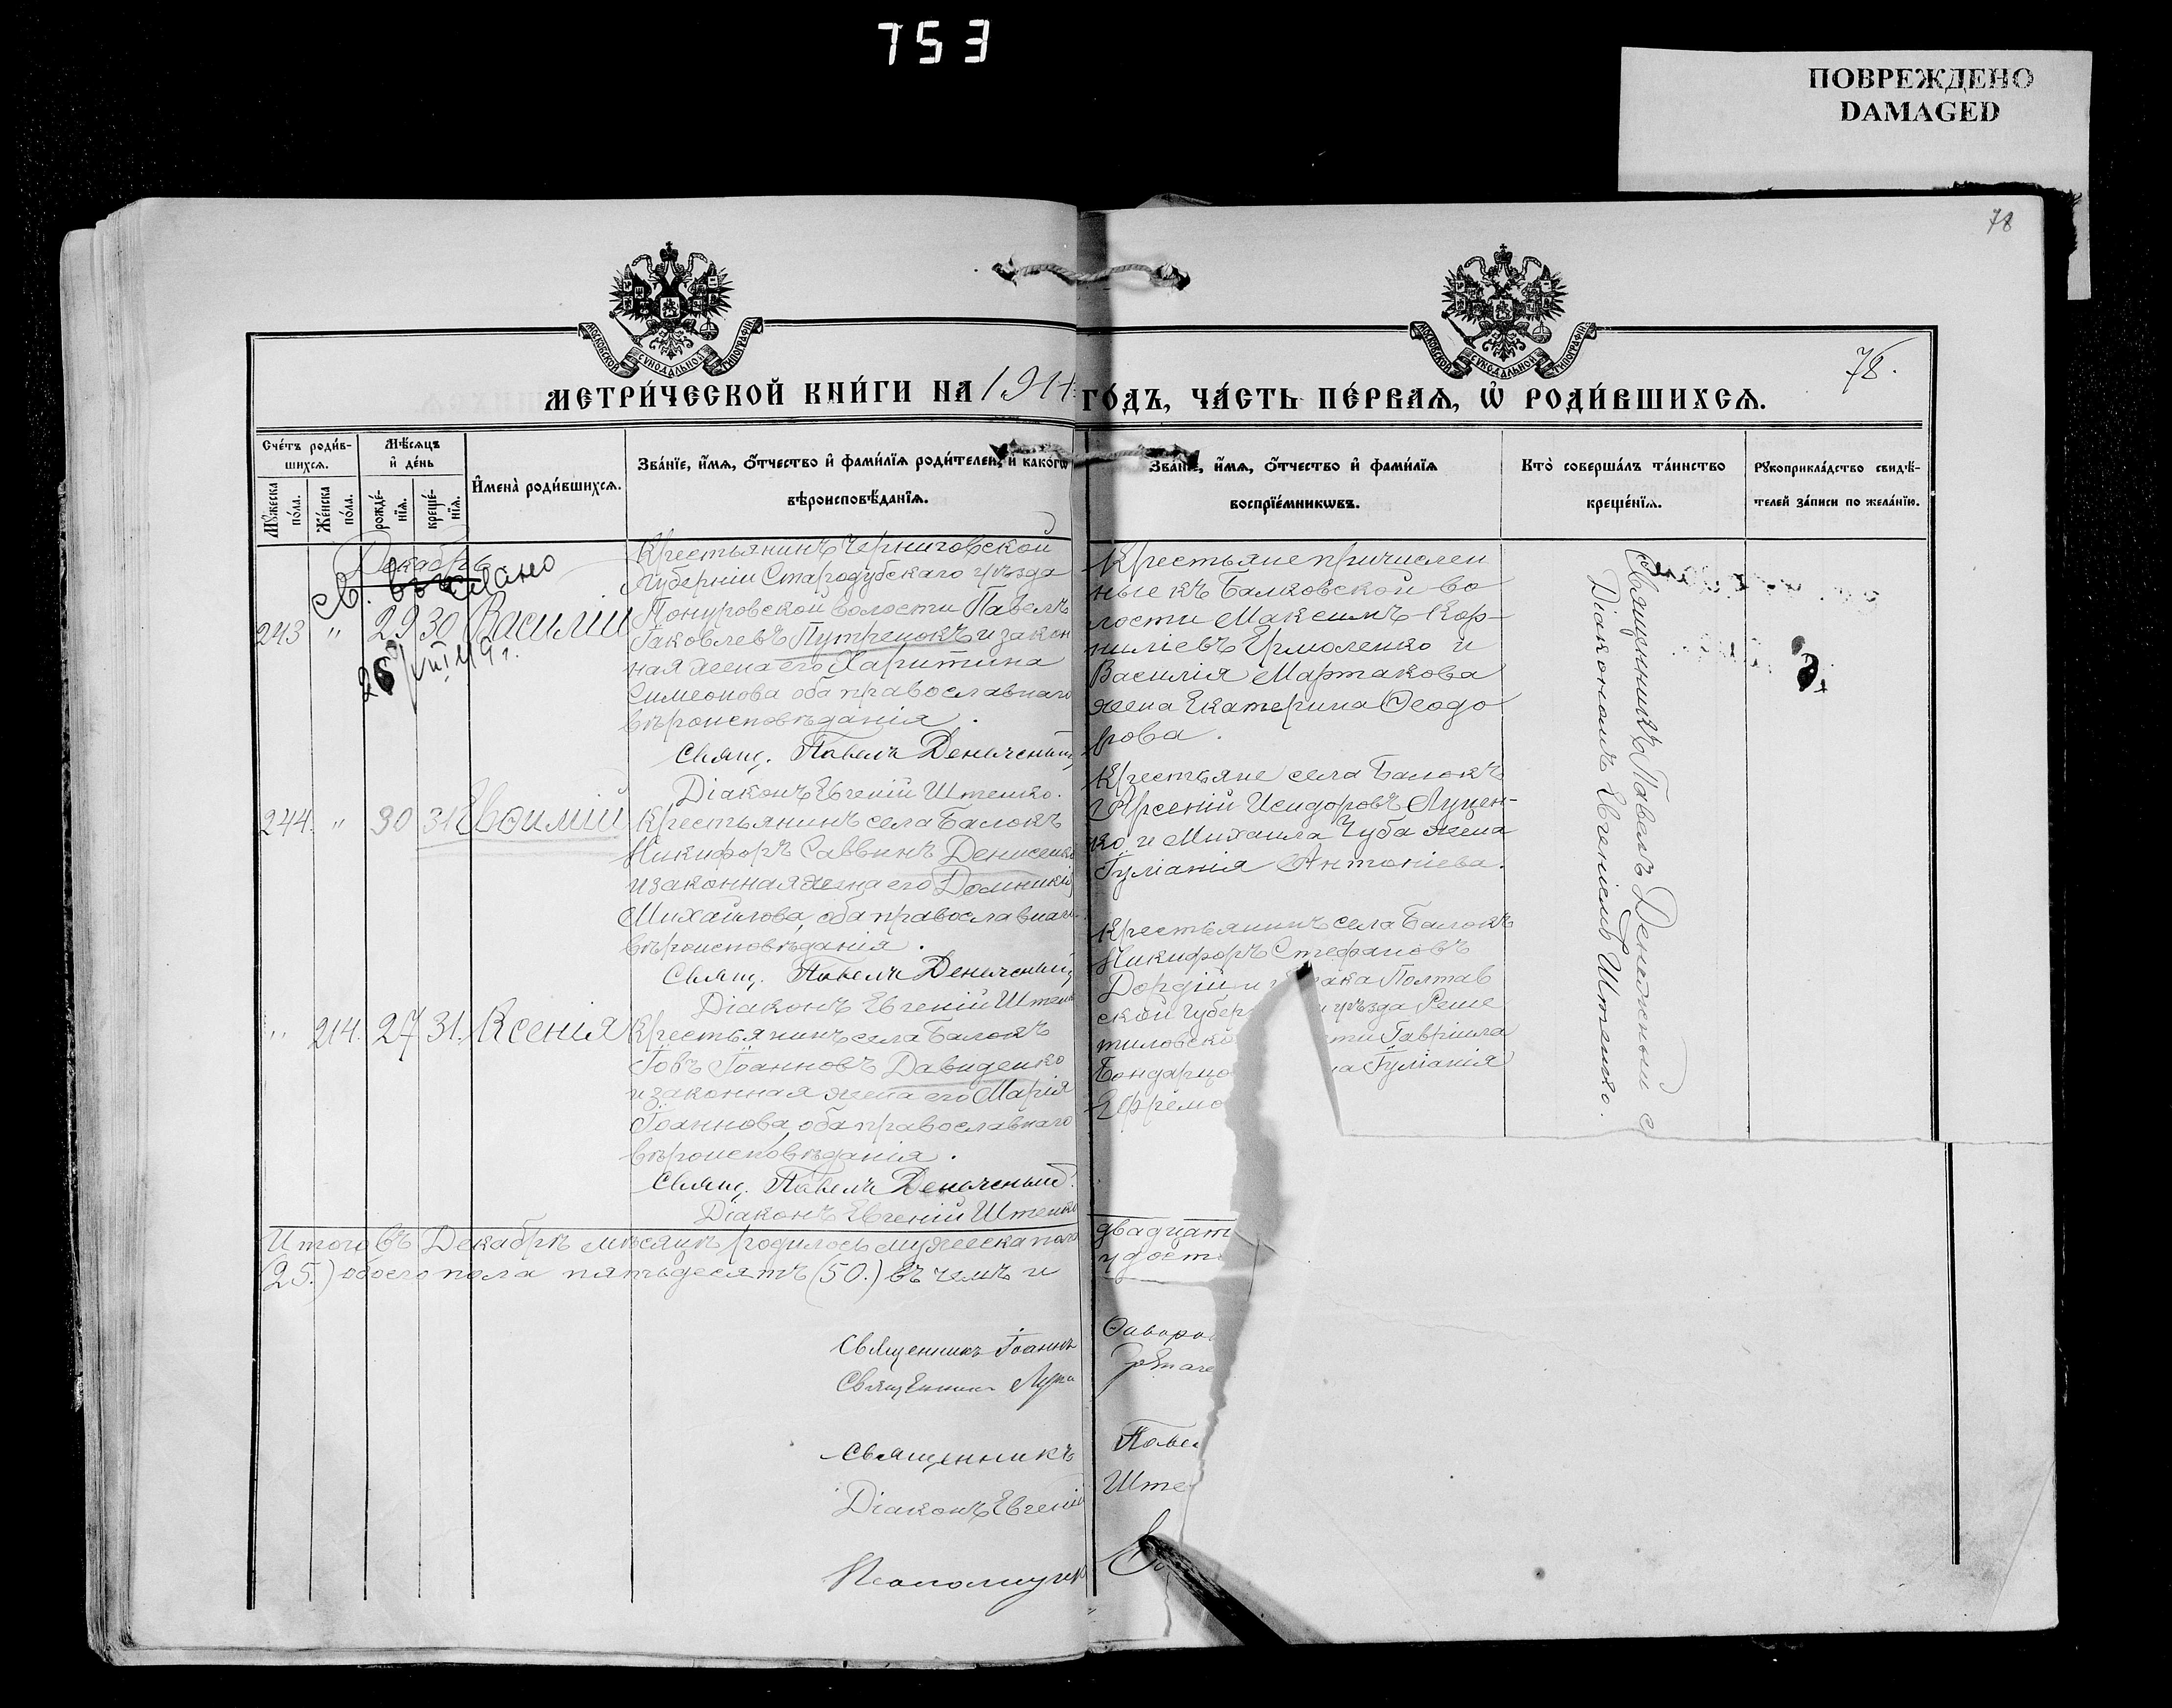 753
ПОВРЕЖДЕНО
DAMAGED
78
МОСКОВСКОЙ СѴНОДАЛЬНОЙ ТИПОГРАФІИ
МОСКОВСКОЙ СѴНОДАЛЬНОЙ ТИПОГРАФІИ
78.
МЕТРИ́ЧЕСКОЙ КНИ́ГИ НА 1914 ГО́ДЪ, ЧА́СТЬ ПЕ́РВАѦ, Ѽ РОДИ́ВШИХСѦ.
Сче́тъ роди́в-
шихсѧ.
Мꙋ́жеска по́ла.
Же́нска по́ла.
Мѣ́сѧцъ
и҆ де́нь
рожде́-
нїѧ.
креще́-
нїѧ.
И҆мена̀ роди́вшихсѧ.
Зва́нїе, и҆́мѧ, ѻ҆́тчество и҆ фами́лїѧ роди́телей, и҆ како́гѡ
вѣроисповѣ́данїѧ.
Зва́нїе, и҆́мѧ, ѻ҆́тчество и҆ фами́лїѧ
воспрїе́мникѡвъ.
Кто̀ соверша́лъ та́инство
креще́нїѧ.
Рꙋкоприкла́дство свидѣ́-
телей за́писи по жела́нїю.
Декабрь
243 " 29 30 Василій
Крестьянинъ Черниговской
Губерніи Стародубскаго уѣзда
Понуровской волости Павелъ
Іаковлевъ Путренокъ и закон
ная жена его Харитина
Симеонова оба православнаго
вѣроисповѣданія.
Свящ. Павелъ
Діаконъ Евгеній Штепко.
Крестьяне причислен
ные къ Балковской во
лости Максимъ Кор-
ниліевъ Ермоленко и
Василія Мартакова
жена Екатерина Ѳеодо
рова.
244. " 30 31 Евѳимій
Крестьянинъ села Балокъ
Никифоръ Саввинъ Денисенко
и законная жена его Домникія
Михайлова, оба православнаго
вѣроисповѣданія.
Свящ. Павелъ
Діаконъ Евгеній
Крестьяне села Балокъ
Арсеній Исидоровъ Луцен-
ко и Михаила Чуба жена
Іуліанія Антоніева.
" 214. 27 31. Ксенія
Крестьянинъ села Балокъ
Іовъ Іоанновъ Давиденко
и законная жена его Марія
Іоаннова, оба православнаго
вѣроисповѣданія.
Свящ. Павелъ
Діаконъ Евгеній Штепко
Крестьянинъ села Балокъ
Никифоръ Стефановъ
Полтав
ской Губер уѣзда Реше
тиловско Гавріила
Бондар Іуліанія
Ефремо
Священникъ Павелъ
Діакономъ Евгеніемъ Штепко.
Итого въ Декабрѣ мѣсяцѣ родилось мужеска пола двадцат
(25.) обоего пола пятьдесятъ (50.) въ чемъ и удосто
Священникъ Іоаннъ
Священникъ Лука
Священникъ Паве
Діаконъ Евгеній Штеп